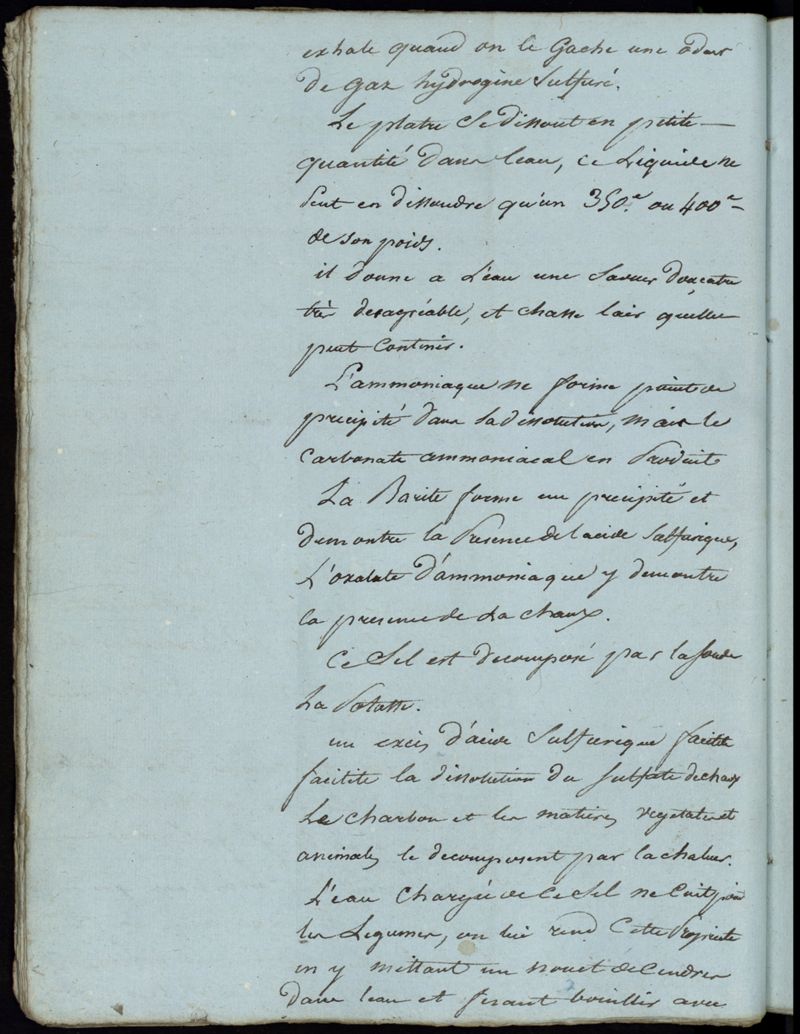 exhale quand on le Gache une odeur
de gaz hydrogène Sulfuré.
Le platre se dissout en petite
quantité dans leau, ce Liquide ne
peut en dissoudre qu'un 350.e ou 400e
de son poids.
il donne a L'eau une Saveur douceatre
très desagréable, et chasse lair quelle
peut Contenir.
L'ammoniaque ne forme point de
précipité dans sa dissolution, mais le
Carbonate ammoniacal en Produit
La Barite forme un precipité et
demontre la Presence de lacide Sulfurique,
L'oxalate D'ammoniaque y demontre
la presence de La chaux.
Ce Sel est decomposé par la soude
La Potasse.
un excès d'acide Sulfurique facilite
facilite la dissolution du Sulfate de chaux
Le charbon et les matieres vegetales et
animales le decomposent par la chaleur.
L'eau Chargée de Ce Sel ne Cuit point
les Legumes, on lui rend Cette Propriete
en y mettant un nouet de Cendres
Dans leau et fesant bouillir avec